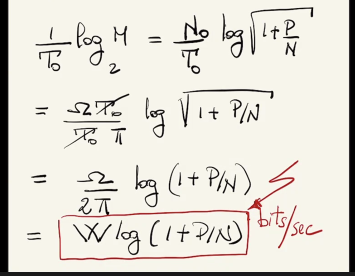 1/T₀ log₂ M = N₀/T₀ log √(1+P/N)
= ΩT₀/T₀π log √(1+P/N)
= Ω/2π log (1+P/N)
= W log (1+P/N) bits/sec